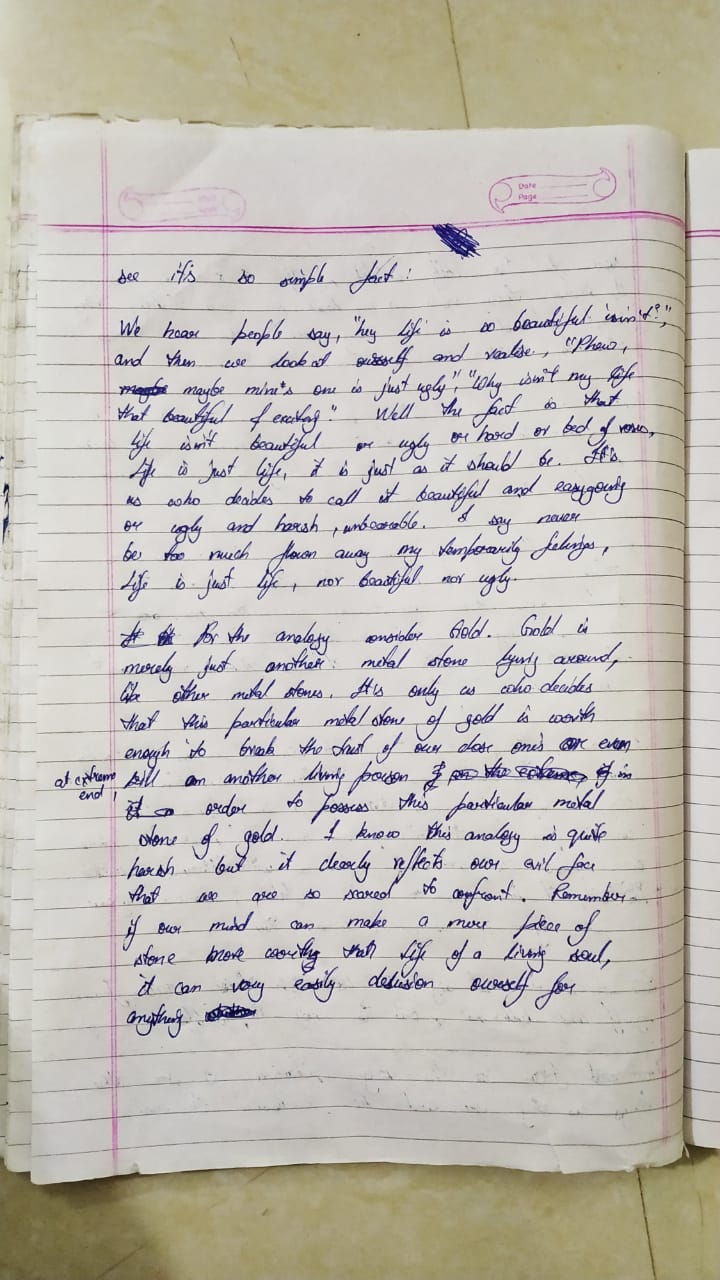 Date
Page
see it's so simple fact:
We hear people say, "hey life is so beautiful isnin't?",
and then we look at ourself and realise, "Phew,
maybe mine's one is just ugly", "Why isn't my life
that beautiful & exciting." Well the fact is that
life isn't beautiful or ugly or hard or bed of roses,
Life is just life, it is just as it should be. It's
us who decides to call it beautiful and easygoing
or ugly and harsh, unbearable. I say never
be too much flown away my temporarily feelings,
Life is just life, nor beautiful nor ugly.
For the analogy consider Gold. Gold is
merely just another metal stone lying around,
like other metal stones. It is only us who decides
that this particular metal stone of gold is worth
enough to break the trust of our close one's or even
at extreme end,
kill an another living person in
order to possess this particular metal
stone of gold. I know this analogy is quite
harsh but it clearly reflects our evil face
that we are so scared to confront. Remember
if our mind can make a mere piece of
stone more worthy than life of a living soul,
it can very easily delusion ourself for
anything.